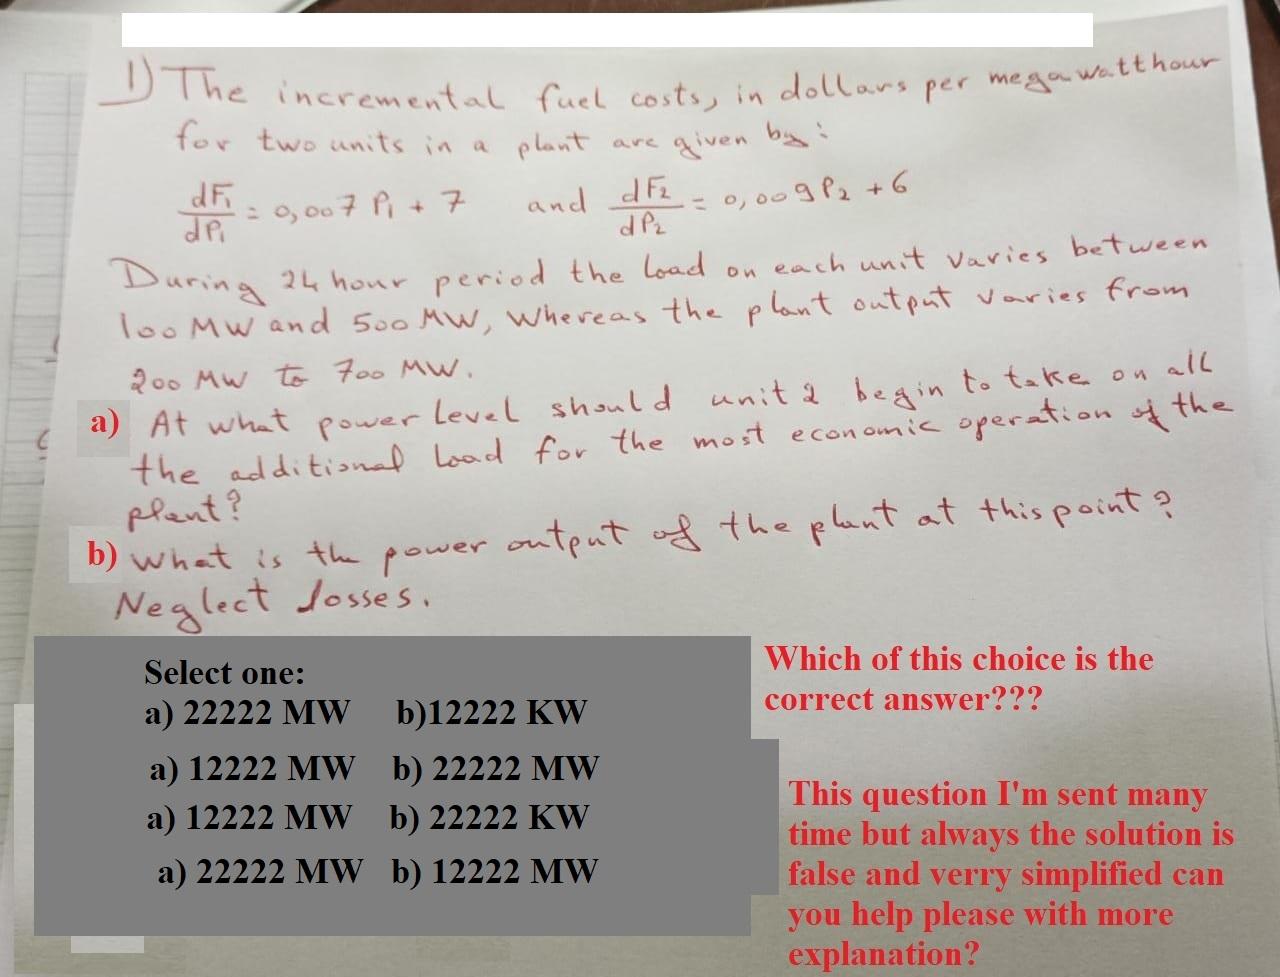 1) The incremental fuel costs, in dollars per megawatthour
for two units in a plant are given by:
dF₁/dP₁ = 0,007 P₁ + 7 and dF₂/dP₂ = 0,009 P₂ + 6
During 24 hour period the load on each unit varies between
100 MW and 500 MW, Whereas the plant output varies from
200 MW to 700 MW.
a) At what power level should unit 2 begin to take on all
the additional load for the most economic operation of the
plant?
b) What is the power output of the plant at this point?
Neglect losses.
Select one:
a) 22222 MW b)12222 KW
a) 12222 MW b) 22222 MW
a) 12222 MW b) 22222 KW
a) 22222 MW b) 12222 MW
Which of this choice is the
correct answer???
This question I'm sent many
time but always the solution is
false and verry simplified can
you help please with more
explanation?